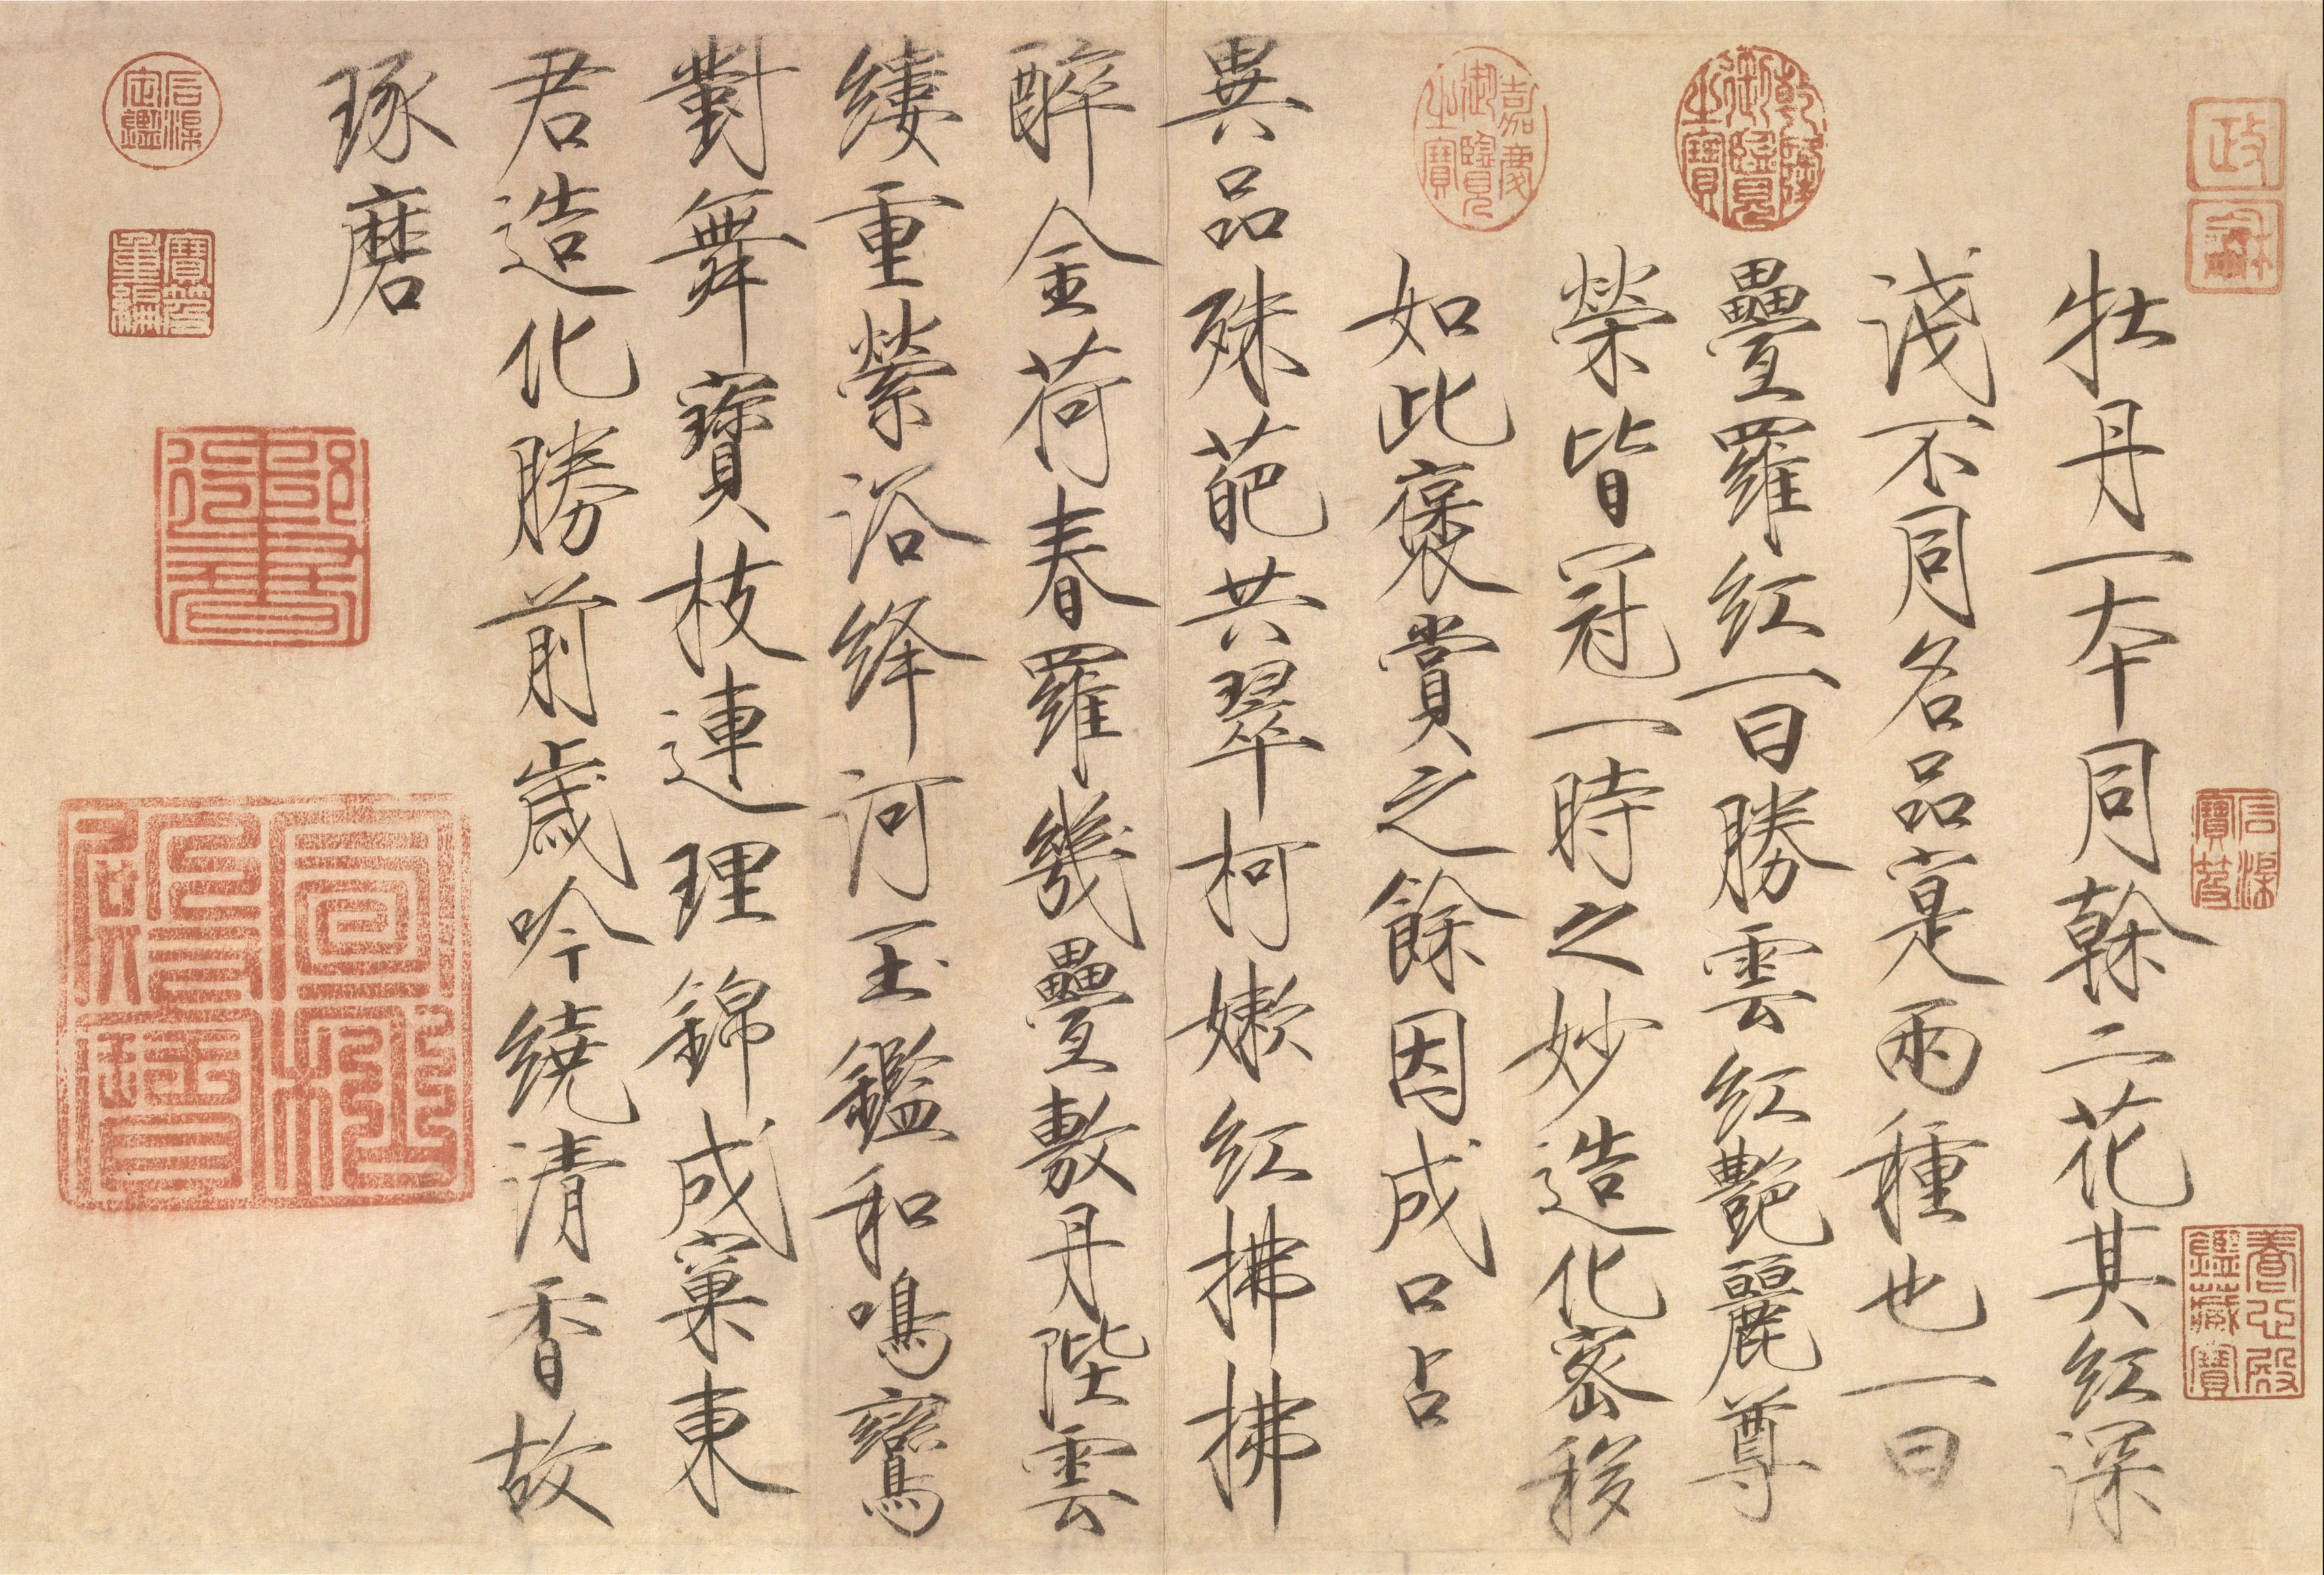 政龢
石渠寶笈
養心殿鑑藏寶
牡丹一本同榦二花其紅深
淺不同名品寔兩種也一曰
乾隆御覽之寶
疊羅紅一曰勝雲紅艷麗尊
榮皆冠一時之妙造化密移
嘉慶御覽之寶
如此褒賞之餘因成口占
異品殊葩共翠柯嫩紅拂拂
醉金荷春羅幾疊敷丹陛雲
縷重縈浴絳河玉鑑和鳴鸞
對舞寶枝連理錦成窠東
君造化勝前歲吟繞清香故
琢磨
石渠定鑑
寶笈重編